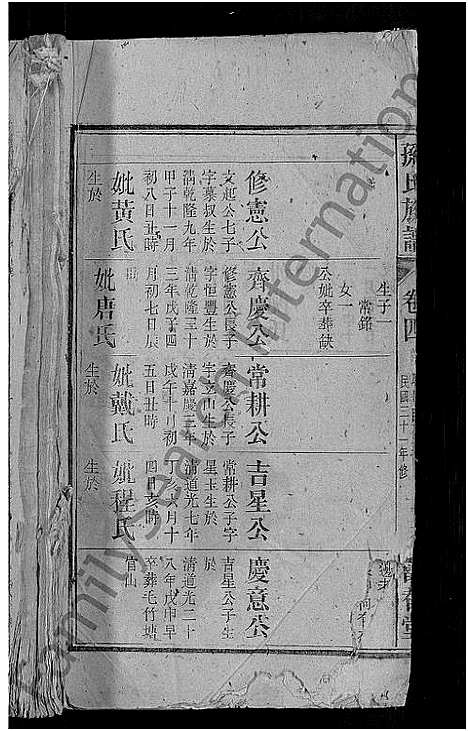 孫氏族譜
卷四
民國三十一年修
生子一
常銘
女一
公妣卒葬缺
修憲公
文起公七子
字慕叔生於
清乾隆九年
甲子十一月
初八日丑時
妣黃氏
生於
齊慶公
修憲公長子
字恒豐生於
清乾隆三十
三年戊子四
月初七日辰
妣唐氏
常耕公
齊慶公長子
字立山生於
清嘉慶三年
戊午十月初
五日丑時
妣戴氏
生於
吉星公
常耕公子字
星玉生於
清道光七年
丁亥六月十
四日亥時
妣程氏
生於
慶意公
吉星公子生
於
清道光二十
八年戊申早
卒葬毛竹塘
官山
FamilySearch International